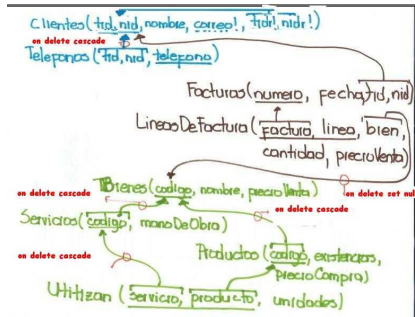 Clientes (tid, nid, nombre, correo!, tidr!, nidr!)
on delete cascade
Telefonos (tid, nid, telefono)
Facturas (numero, fecha, tid, nid)
LineasDeFactura (factura, linea, bien,
cantidad, precioVenta)
on delete cascade
on delete set nul
Bienes (codigo, nombre, precioVenta)
on delete cascade
Servicios (codigo, manoDeObra)
on delete cascade
Productos (codigo, existencias,
precioCompra)
Utilizan (servicio, producto, unidades)